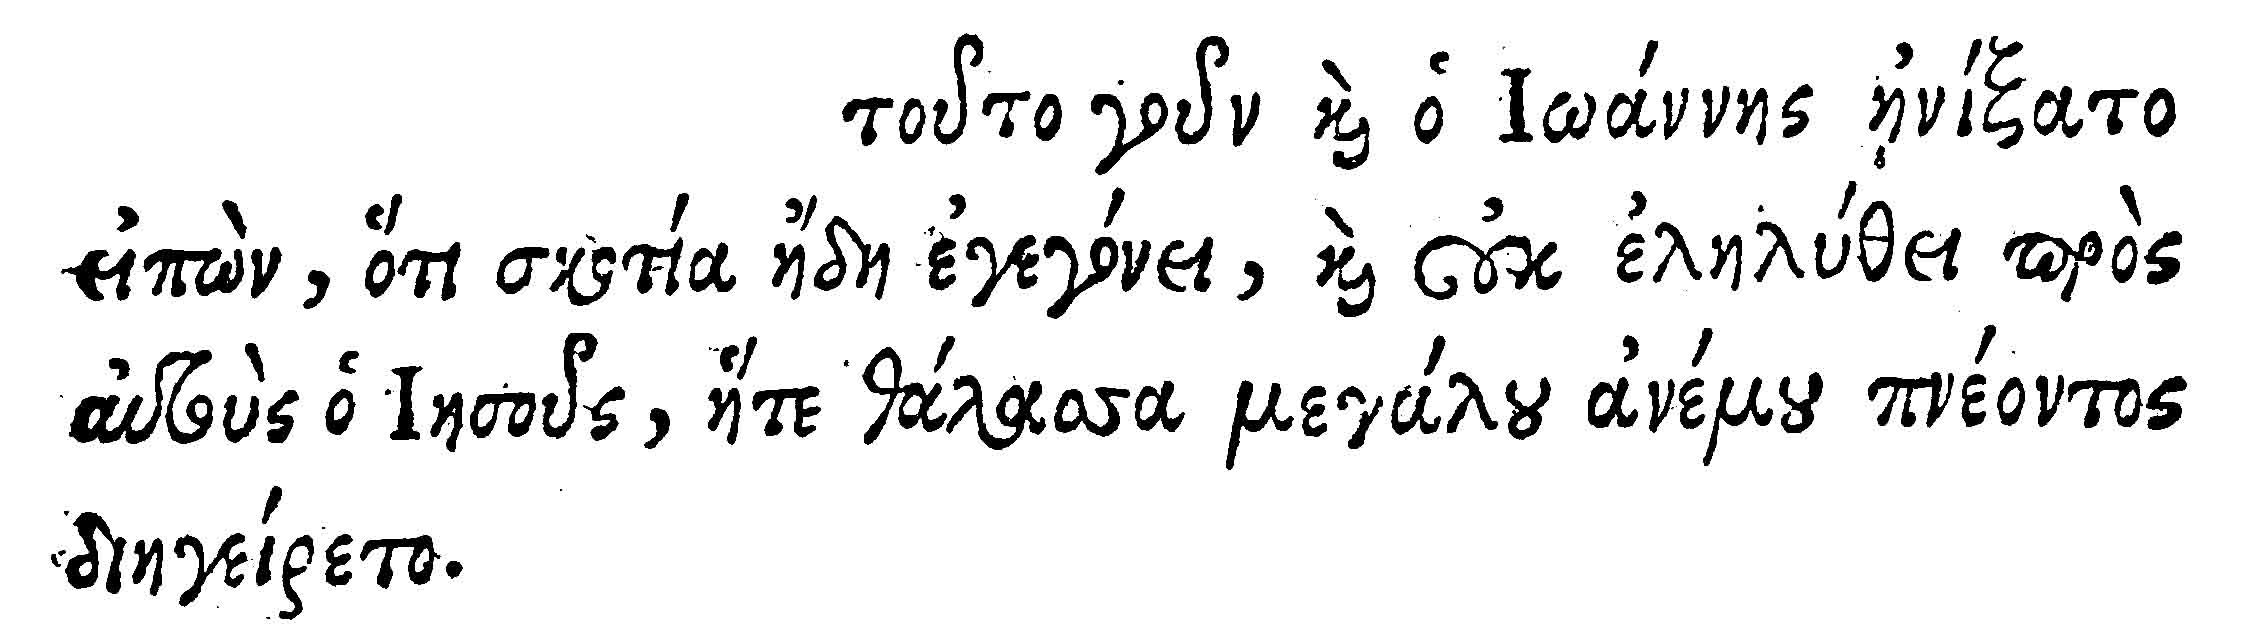 τοῦτο γοῦν καὶ ὁ Ἰωάννης ᾐνίξατο
εἰπὼν, ὅτι σκοτία ἤδη ἐγεγόνει, καὶ οὐκ ἐληλύθει πρὸς
αὐτοὺς ὁ Ἰησοῦς, ἥτε θάλασσα μεγάλου ἀνέμου πνέοντος
διηγείρετο.